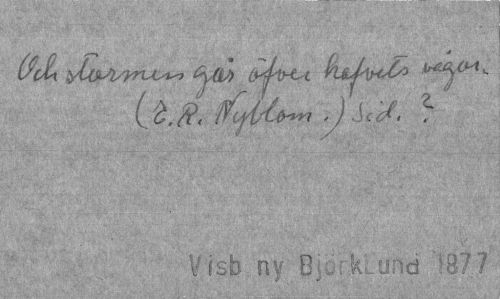 Och stormen går öfver hafvets vågor.
(E. R. Nyblom.) Sid. ?
Visb ny BjörkLund 1877